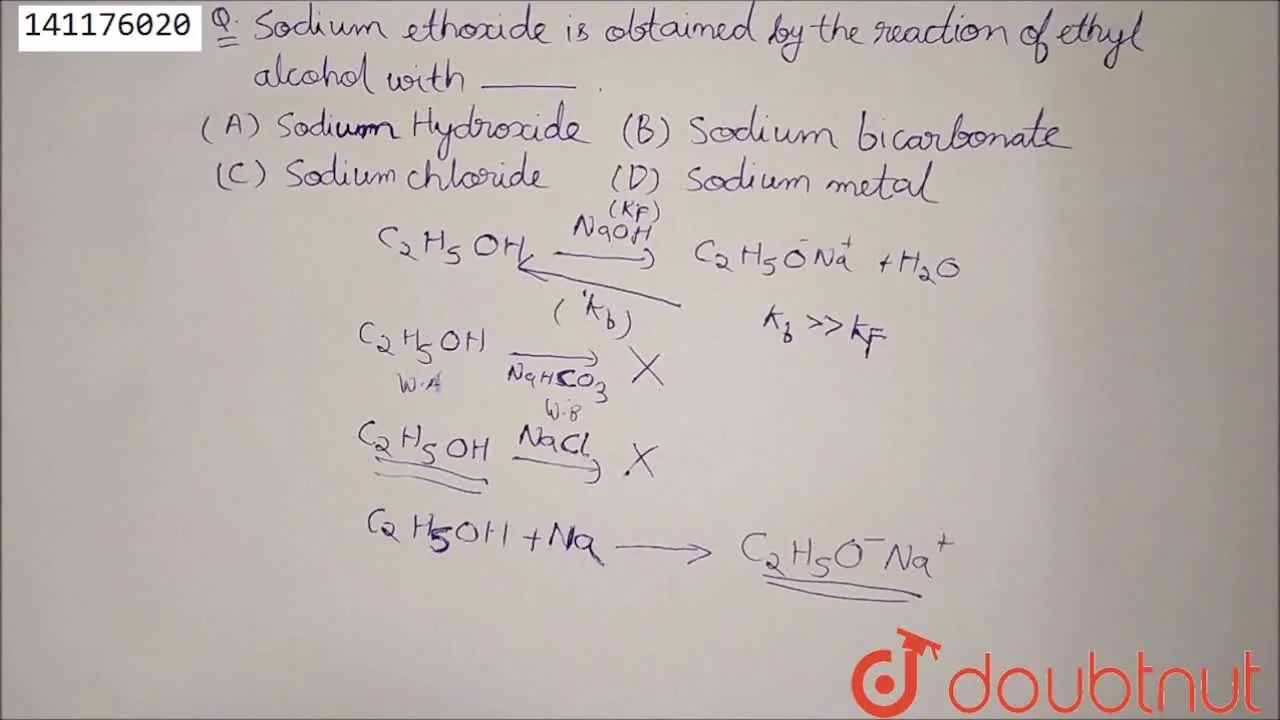 141176020
Q. Sodium ethoxide is obtained by the reaction of ethyl
alcohol with ______ .
(A) Sodium Hydroxide (B) Sodium bicarbonate
(C) Sodium chloride (D) Sodium metal
(KF)
C₂H₅OH NaOH → C₂H₅O⁻Na⁺ + H₂O
(Kb) Kb >> KF
C₂H₅OH NaHCO₃ → X
W.A W.B
C₂H₅OH NaCl → X
C₂H₅OH + Na → C₂H₅O⁻Na⁺
doubtnut